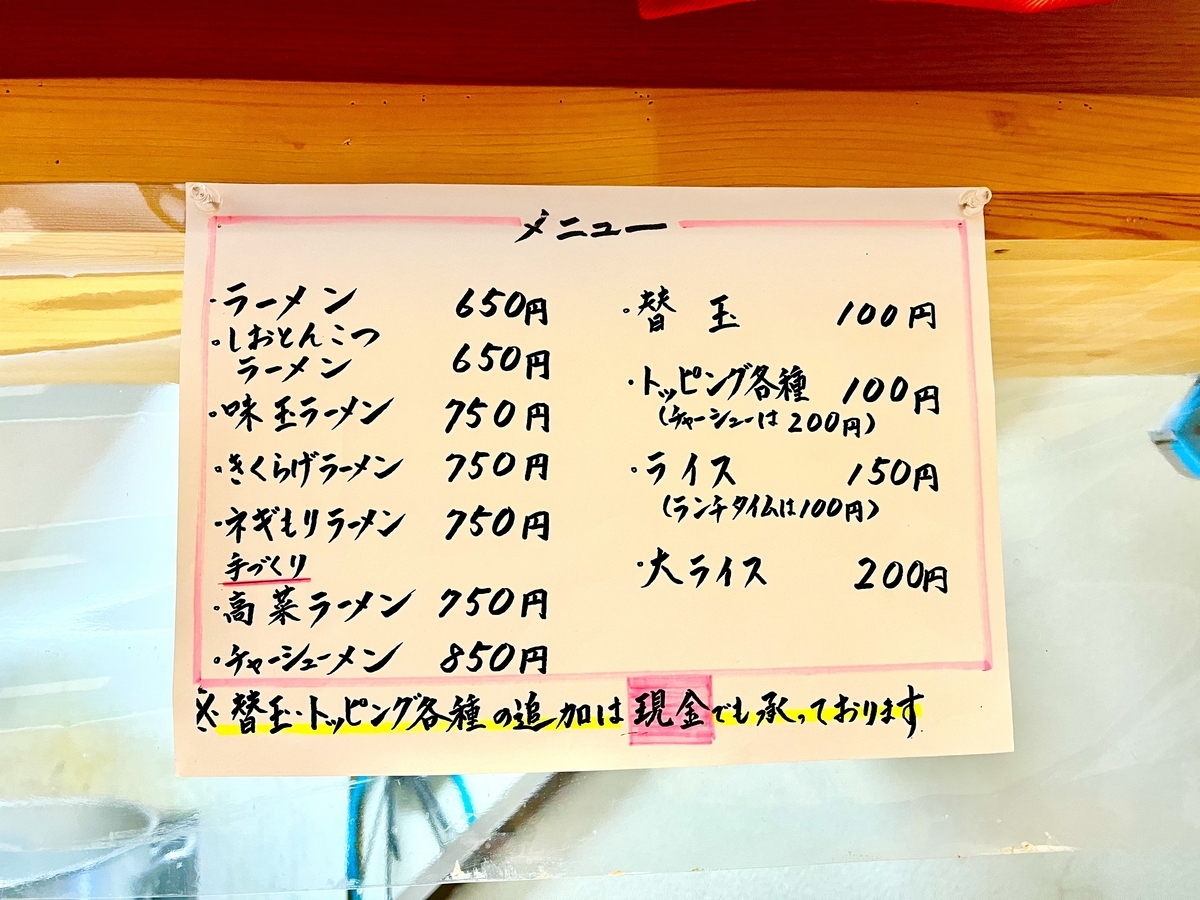 メニュー
・ラーメン 650円
・しおとんこつ
ラーメン 650円
・味玉ラーメン 750円
・きくらげラーメン 750円
・ネギもりラーメン 750円
手づくり
・高菜ラーメン 750円
・チャーシューメン 850円
・替玉 100円
・トッピング各種 100円
(チャーシューは200円)
・ライス 150円
(ランチタイムは100円)
・大ライス 200円
※替玉・トッピング各種の追加は現金でも承っております